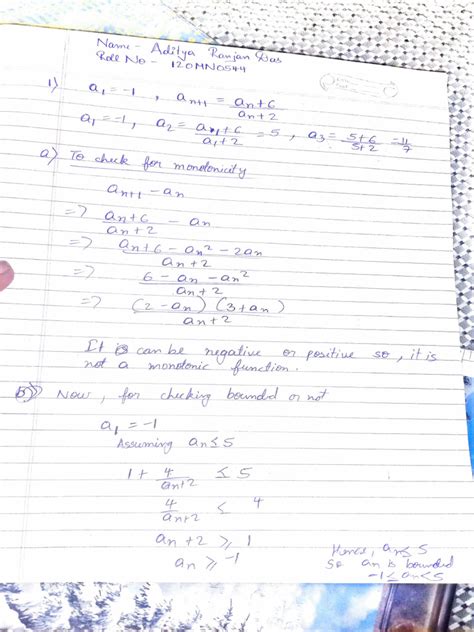 Name - Aditya Ranjan Das
Roll No - 120MN0544
1) a₁ = -1 , aₙ₊₁ = (aₙ+6)/(aₙ+2)
a₁ = -1, a₂ = (a₁+6)/(a₁+2) = 5 , a₃ = (5+6)/(5+2) = 11/7
a) To check for monotonicity
aₙ₊₁ - aₙ
=> (aₙ+6)/(aₙ+2) - aₙ
=> (aₙ+6-aₙ²-2aₙ)/(aₙ+2)
=> (6-aₙ-aₙ²)/(aₙ+2)
=> (2-aₙ)(3+aₙ)/(aₙ+2)
It can be negative or positive so, it is
not a monotonic function.
b) Now, for checking bounded or not
a₁ = -1
Assuming aₙ ≤ 5
1 + 4/(aₙ+2) ≤ 5
4/(aₙ+2) ≤ 4
aₙ + 2 ≥ 1
aₙ ≥ -1
Hence, aₙ ≤ 5
So aₙ is bounded
-1 ≤ aₙ ≤ 5